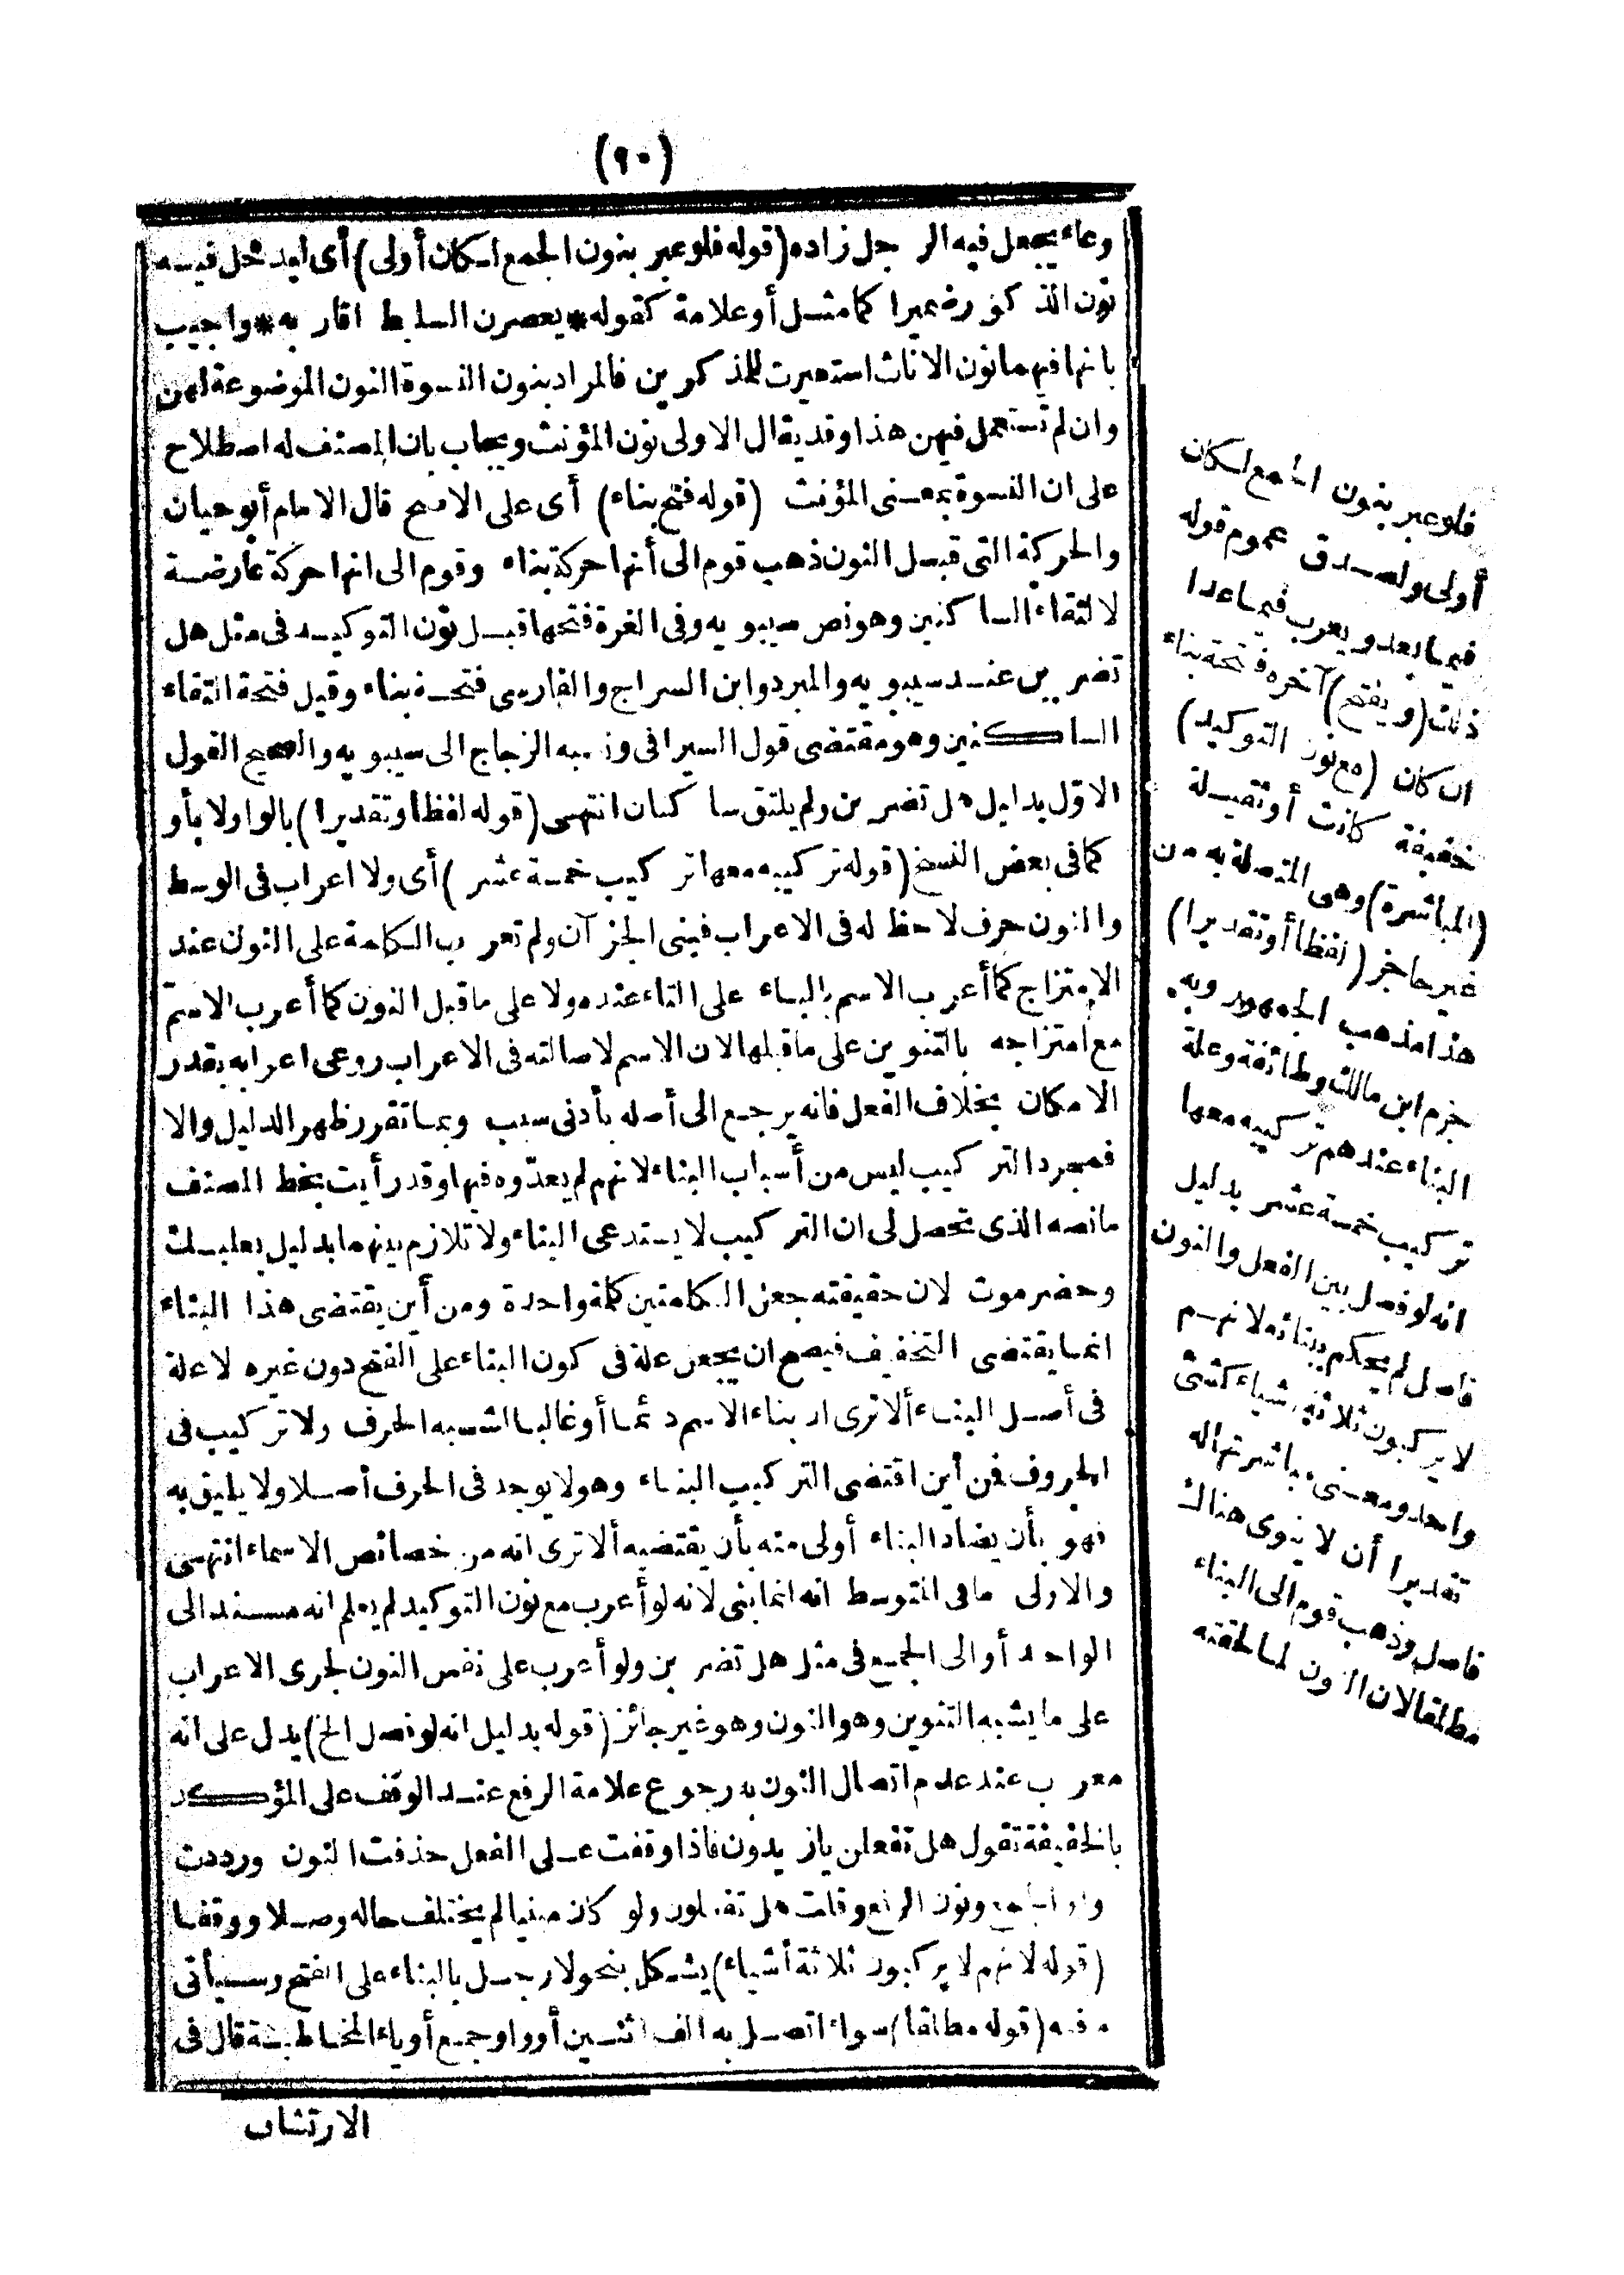 (٩٠)
وعاء يجعل فيه الرجل زاده (قوله فلو عبر بنون الجمع لكان أولى) أى ليدخل فيه
نون الذكور ضميرا كما مثل أو علامة كقوله * يعصرن السليط اقاربه * واجيب
بانها فيهما نون الاناث استعيرت للمذكرين فالمراد بنون النسوة النون الموضوعة لهن
وان لم تستعمل فيهن هذا وقد يقال الاولى نون المؤنث ويجاب بان المصنف له اصطلاح
على ان النسوة بمعنى المؤنث (قوله فتح بناء) أى على الاصح قال الامام أبو حيان
والحركة التى قبل النون ذهب قوم الى أنها حركة بناء وقوم الى انها حركة عارضة
لالتقاء الساكنين وهو نص سيبويه وفى الغرة فتحها قبل نون التوكيد فى مثل هل
تضربن عند سيبويه والمبرد وابن السراج والفارسى فتحة بناء وقيل فتحة التقاء
الساكنين وهو مقتضى قول السيرافى ونسبه الزجاج الى سيبويه والصحيح القول
الاوّل بدليل هل تضربن ولم يلتق ساكنان انتهى (قوله لفظا وتقديرا) بالواو لا بأو
كما فى بعض النسخ (قوله تركيبه معها تركيب خمسة عشر) أى ولا اعراب فى الوسط
والنون حرف لا حظ له فى الاعراب فبنى الجزآن ولم تعرب الكلمة على النون عند
الامتزاج كما أعرب الاسم بالبناء على التاء عنده ولا على ما قبل النون كما أعرب الاسم
مع امتزاجه بالتنوين على ما قبلها لان الاسم لاصالته فى الاعراب روعى اعرابه بقدر
الامكان بخلاف الفعل فانه يرجع الى أصله بأدنى سبب وبما تقرر ظهر الدليل والا
فمجرد التركيب ليس من أسباب البناء لانهم لم يعدّوه فيها وقد رأيت بخط المصنف
ما نصه الذى تحصل لى ان التركيب لا يستدعى البناء ولا تلازم بينهما بدليل بعلبك
وحضرموت لان حقيقته جعل الكلمتين كلمة واحدة ومن أين يقتضى هذا البناء
انما يقتضى التخفيف فيصح ان يجعل علة فى كون البناء على الفتح دون غيره لا علة
فى أصل البناء ألا ترى ان بناء الاسم دائما أو غالبا لشبه الحرف ولا تركيب فى
الحروف فمن أين اقتضى التركيب البناء وهو لا يوجد فى الحرف أصلا ولا يليق به
فهو بأن يضاد البناء أولى منه بأن يقتضيه ألا ترى انه من خصائص الاسماء انتهى
والاولى ما فى المتوسط انه انما بنى لانه لو أعرب مع نون التوكيد لم يعلم انه مسند الى
الواحد أو الى الجمع فى مثل هل تضربن ولو أعرب على نفس النون لجرى الاعراب
على ما يشبه التنوين وهو النون وهو غير جائز (قوله بدليل انه لو فصل الخ) يدل على انه
معرب عند عدم اتصال النون به رجوع علامة الرفع عند الوقف على المؤكد
بالخفيفة تقول هل تفعلن يا زيدون فاذا وقفت على الفعل حذفت النون ورددت
واو الجمع ونون الرفع وقلت هل تفعلون ولو كان مبنيا لم يختلف حاله وصلا ووقفا
(قوله لانهم لا يركبون ثلاثة أشياء) يشكل بنحو لا رجل بالبناء على الفتح وسيأتى
ما فيه (قوله مطلقا) سواء اتصل به الف اثنين أو واو جمع أو ياء المخاطبة قال فى
الارتشاف
فلو عبر بنون الجمع لكان
أولى ولصدق عموم قوله
فيما بعد ويعرب فيما عدا
ذلك (ويفتح) آخره فتحة بناء
ان كان (مع نون التوكيد)
خفيفة كانت أو ثقيلة
(المباشرة) وهى المتصلة به من
غير حاجز (لفظا أو تقديرا)
هذا مذهب الجمهور وبه
جزم ابن مالك وطائفة وعلة
البناء عندهم تركيبه معها
تركيب خمسة عشر بدليل
انه لو فصل بين الفعل والنون
فاصل لم يحكم ببنائه لانهم
لا يركبون ثلاثة أشياء كشئ
واحد ومعنى مباشرتها له
تقديرا أن لا ينوى هناك
فاصل وذهب قوم الى البناء
مطلقا لان النون لما لحقته